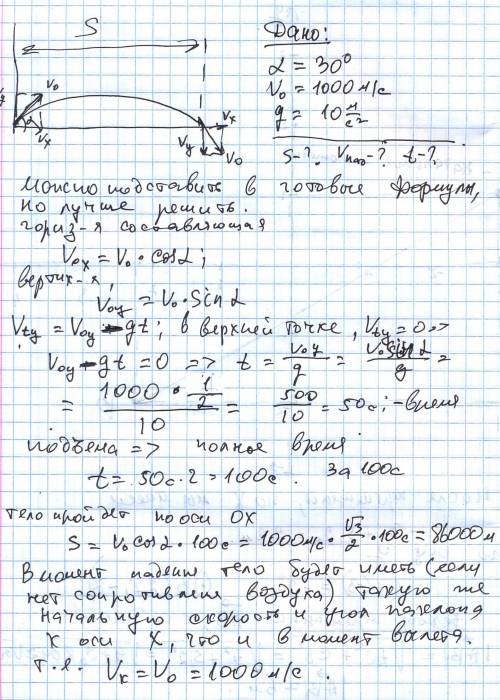 S
Дано:
α = 30°
V₀ = 1000 м/с
g = 10 м/с²
S-? Vпад-? t-?
Vy V₀ α Vx
Vx Vy V₀
Можно подставить в готовые формулы,
но лучше решить.
гориз-я составляющая
V₀x = V₀ · cosα;
вертик-я,
V₀y = V₀ · Sinα
Vty = V₀y - gt; в верхней точке, Vty = 0 =>
V₀y - gt = 0 => t = V₀y/g = V₀ sinα/g =
= 1000 · 1/2 / 10 = 500/10 = 50с; - время
подъема => полное время
t = 50с · 2 = 100с. За 100с
тело пройдет по оси ОХ
S = V₀ cosα · 100с = 1000м/с · √3/2 · 100с = 86000м
В момент падения тело будет иметь (если
нет сопротивления воздуха) такую же
начальную скорость и угол наклона
к оси Х, что и в момент вылета.
т.е. Vк = V₀ = 1000 м/с.